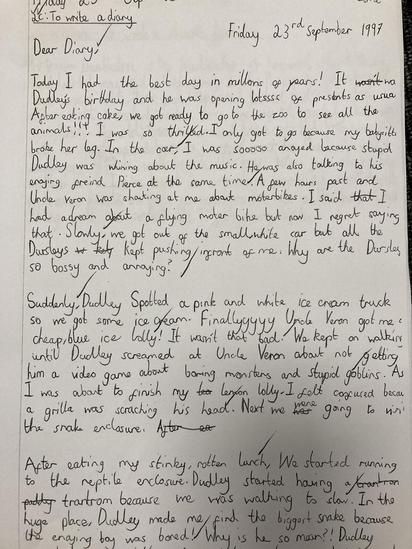 LC: To write a diary
Friday 23rd September 1997
Dear Diary,
Today I had the best day in millons of years! It wasnt wa
Dudley's birthday and he was opening lotsssc of presents as usua
After eating cake, we got ready to go to the zoo to see all the
animals!!! I was so thrilled. I only got to go because my babysitti
broke her leg. In the car, I was sooooo anoyed because stupid
Dudley was whining about the music. He was also talking to his
enojing freind Pierce at the same time. A few hours past and
Uncle Veron was shouting at me about motorbikes. I said that I
had a dream about a flying moter bike but now I regret saying
that. Slowly, we got out of the small white car but all the
Dursleys kept pushing infront of me. Why are the Dursley
so bossy and annaying?
Suddenly, Dudley Spotted a pink and white ice cream truck
so we got some ice cream. Finallyyyyy Uncle Veron got me a
cheap, blue ice lolly! It wasn't that bad. We kept on walking
until Dudley screamed at Uncle Veron about not getting
him a video game about boring monsters and stupid goblins. As
I was about to finish my lemon lolly. I felt confused becau
a grilla was scraching his head. Next we were going to visi
the snake enclosure.
After eating my stinky, rotten lunch, We started running
to the reptile encosure. Dudley started having a
trartrom because we was walking to slow. In the
huge place, Dudley made me find the biggest snake because
the enojing boy was bored! Why is he so mean?! Dudley